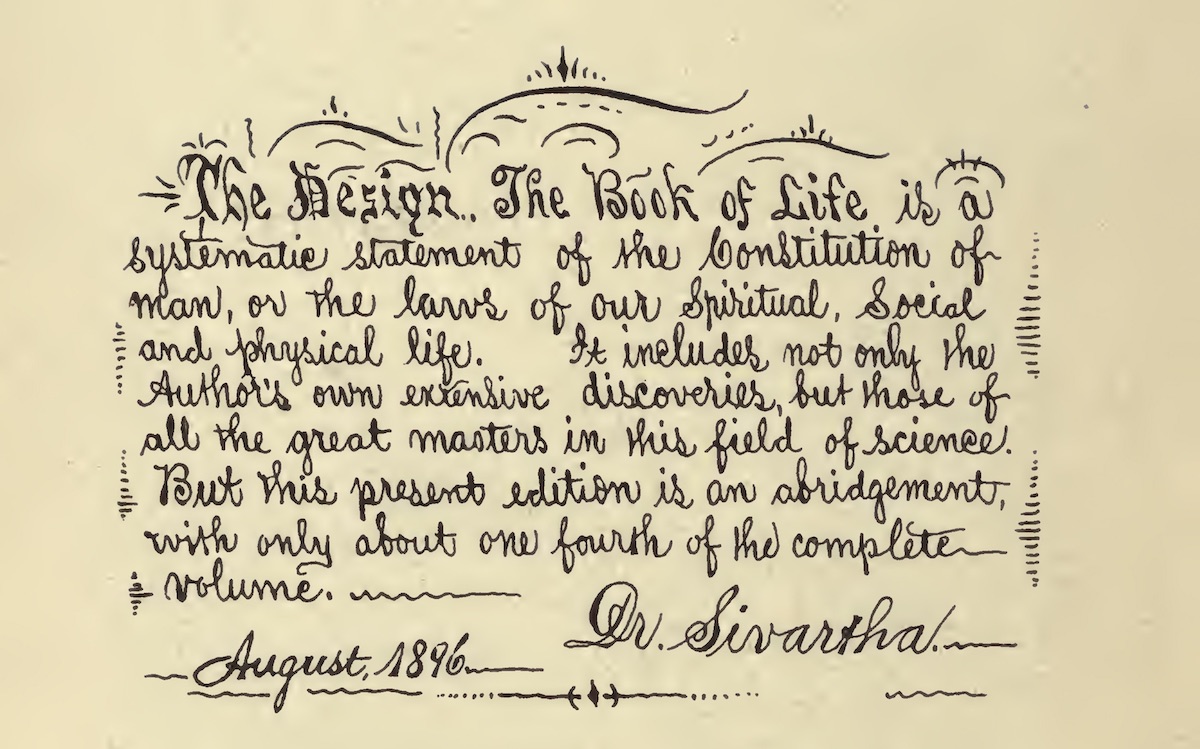 The Design. The Book of Life is a
systematic statement of the Constitution of
man, or the laws of our Spiritual, Social
and physical life. It includes not only the
Author's own extensive discoveries, but those of
all the great masters in this field of science.
But this present edition is an abridgement,
with only about one fourth of the complete
volume.
Dr. Sivartha.
August, 1896